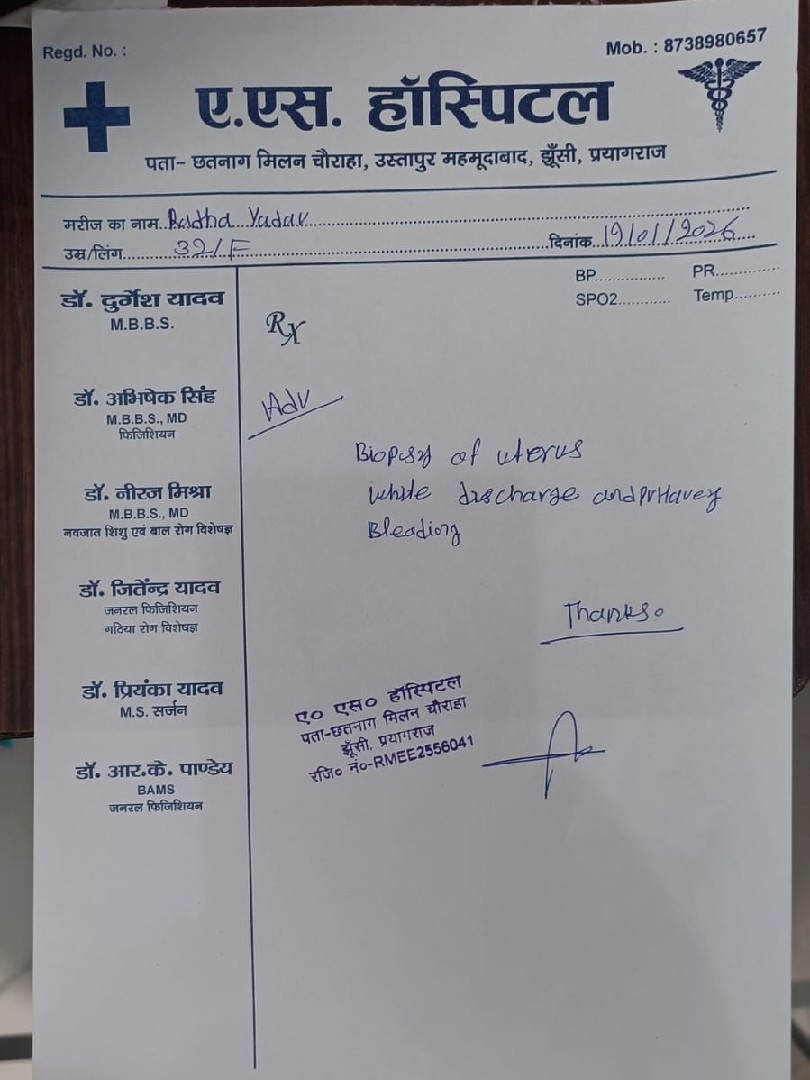 Regd. No. :
Mob. : 8738980657
ए.एस. हॉस्पिटल
पता- छतनाग मिलन चौराहा, उस्तापुर महमूदाबाद, झूँसी, प्रयागराज
मरीज का नाम..Radha Yadav
उम्र/लिंग.....32/F
दिनांक...19/01/2026
BP............... PR.............
SPO2........... Temp..........
डॉ. दुर्गेश यादव
M.B.B.S.
Rx
डॉ. अभिषेक सिंह
M.B.B.S., MD
फिजिशियन
Adv
Biopsy of uterus
white discharge and
Bleeding
डॉ. नीरज मिश्रा
M.B.B.S., MD
नवजात शिशु एवं बाल रोग विशेषज्ञ
डॉ. जितेंन्द्र यादव
जनरल फिजिशियन
गठिया रोग विशेषज्ञ
Thanks.
डॉ. प्रियंका यादव
M.S. सर्जन
ए० एस० हॉस्पिटल
पता-छतनाग मिलन चौराहा
झूँसी, प्रयागराज
रजि० नं०-RMEE2556041
डॉ. आर.के. पाण्डेय
BAMS
जनरल फिजिशियन